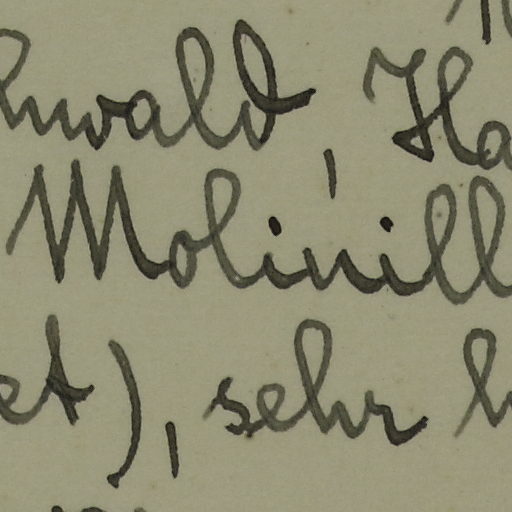 hwald, Ha
Molinill
et), sehr h